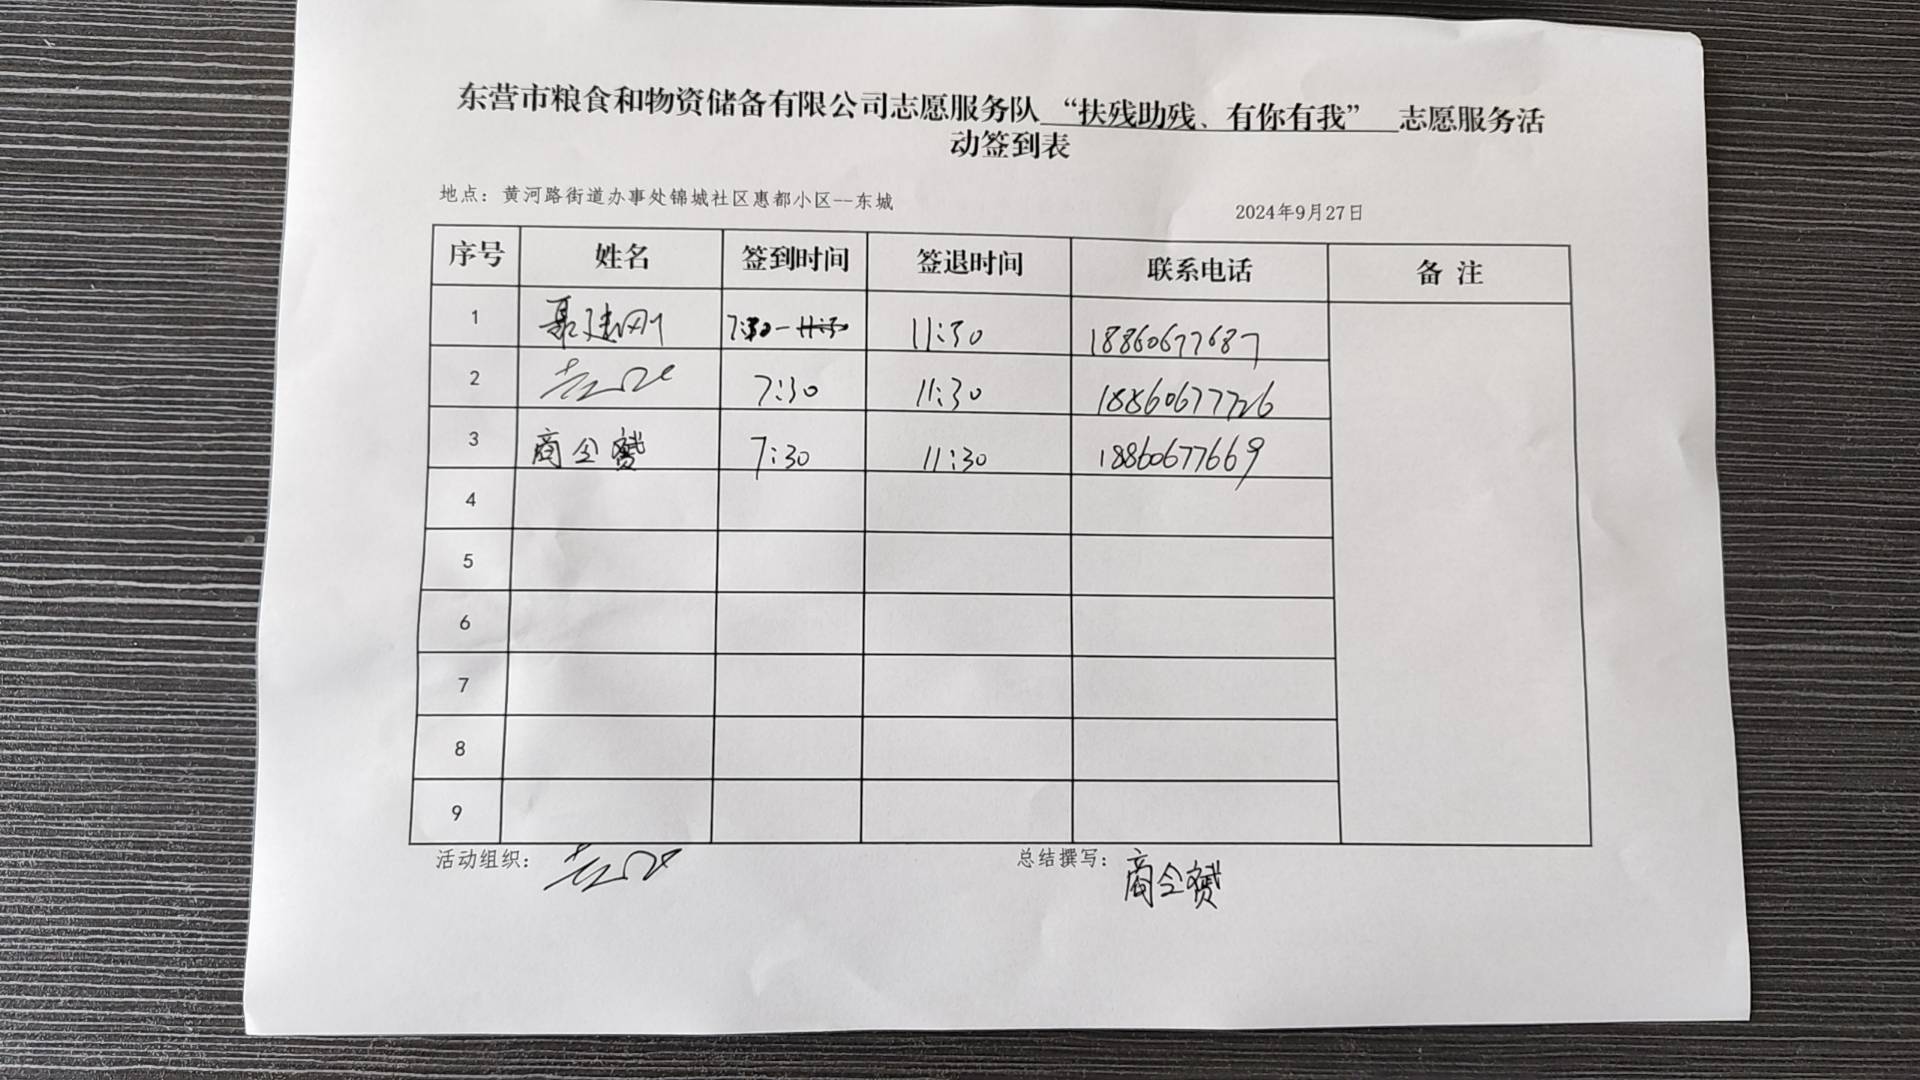 东营市粮食和物资储备有限公司志愿服务队 “扶残助残、有你有我” 志愿服务活
动签到表
地点：黄河路街道办事处锦城社区惠都小区--东城 2024年9月27日
序号 姓名 签到时间 签退时间 联系电话 备 注
1 聂建刚 7:30 11:30 18860677687
2 7:30 11:30 18860677726
3 商全赟 7:30 11:30 18860677669
4
5
6
7
8
9
活动组织： 总结撰写：商全赟